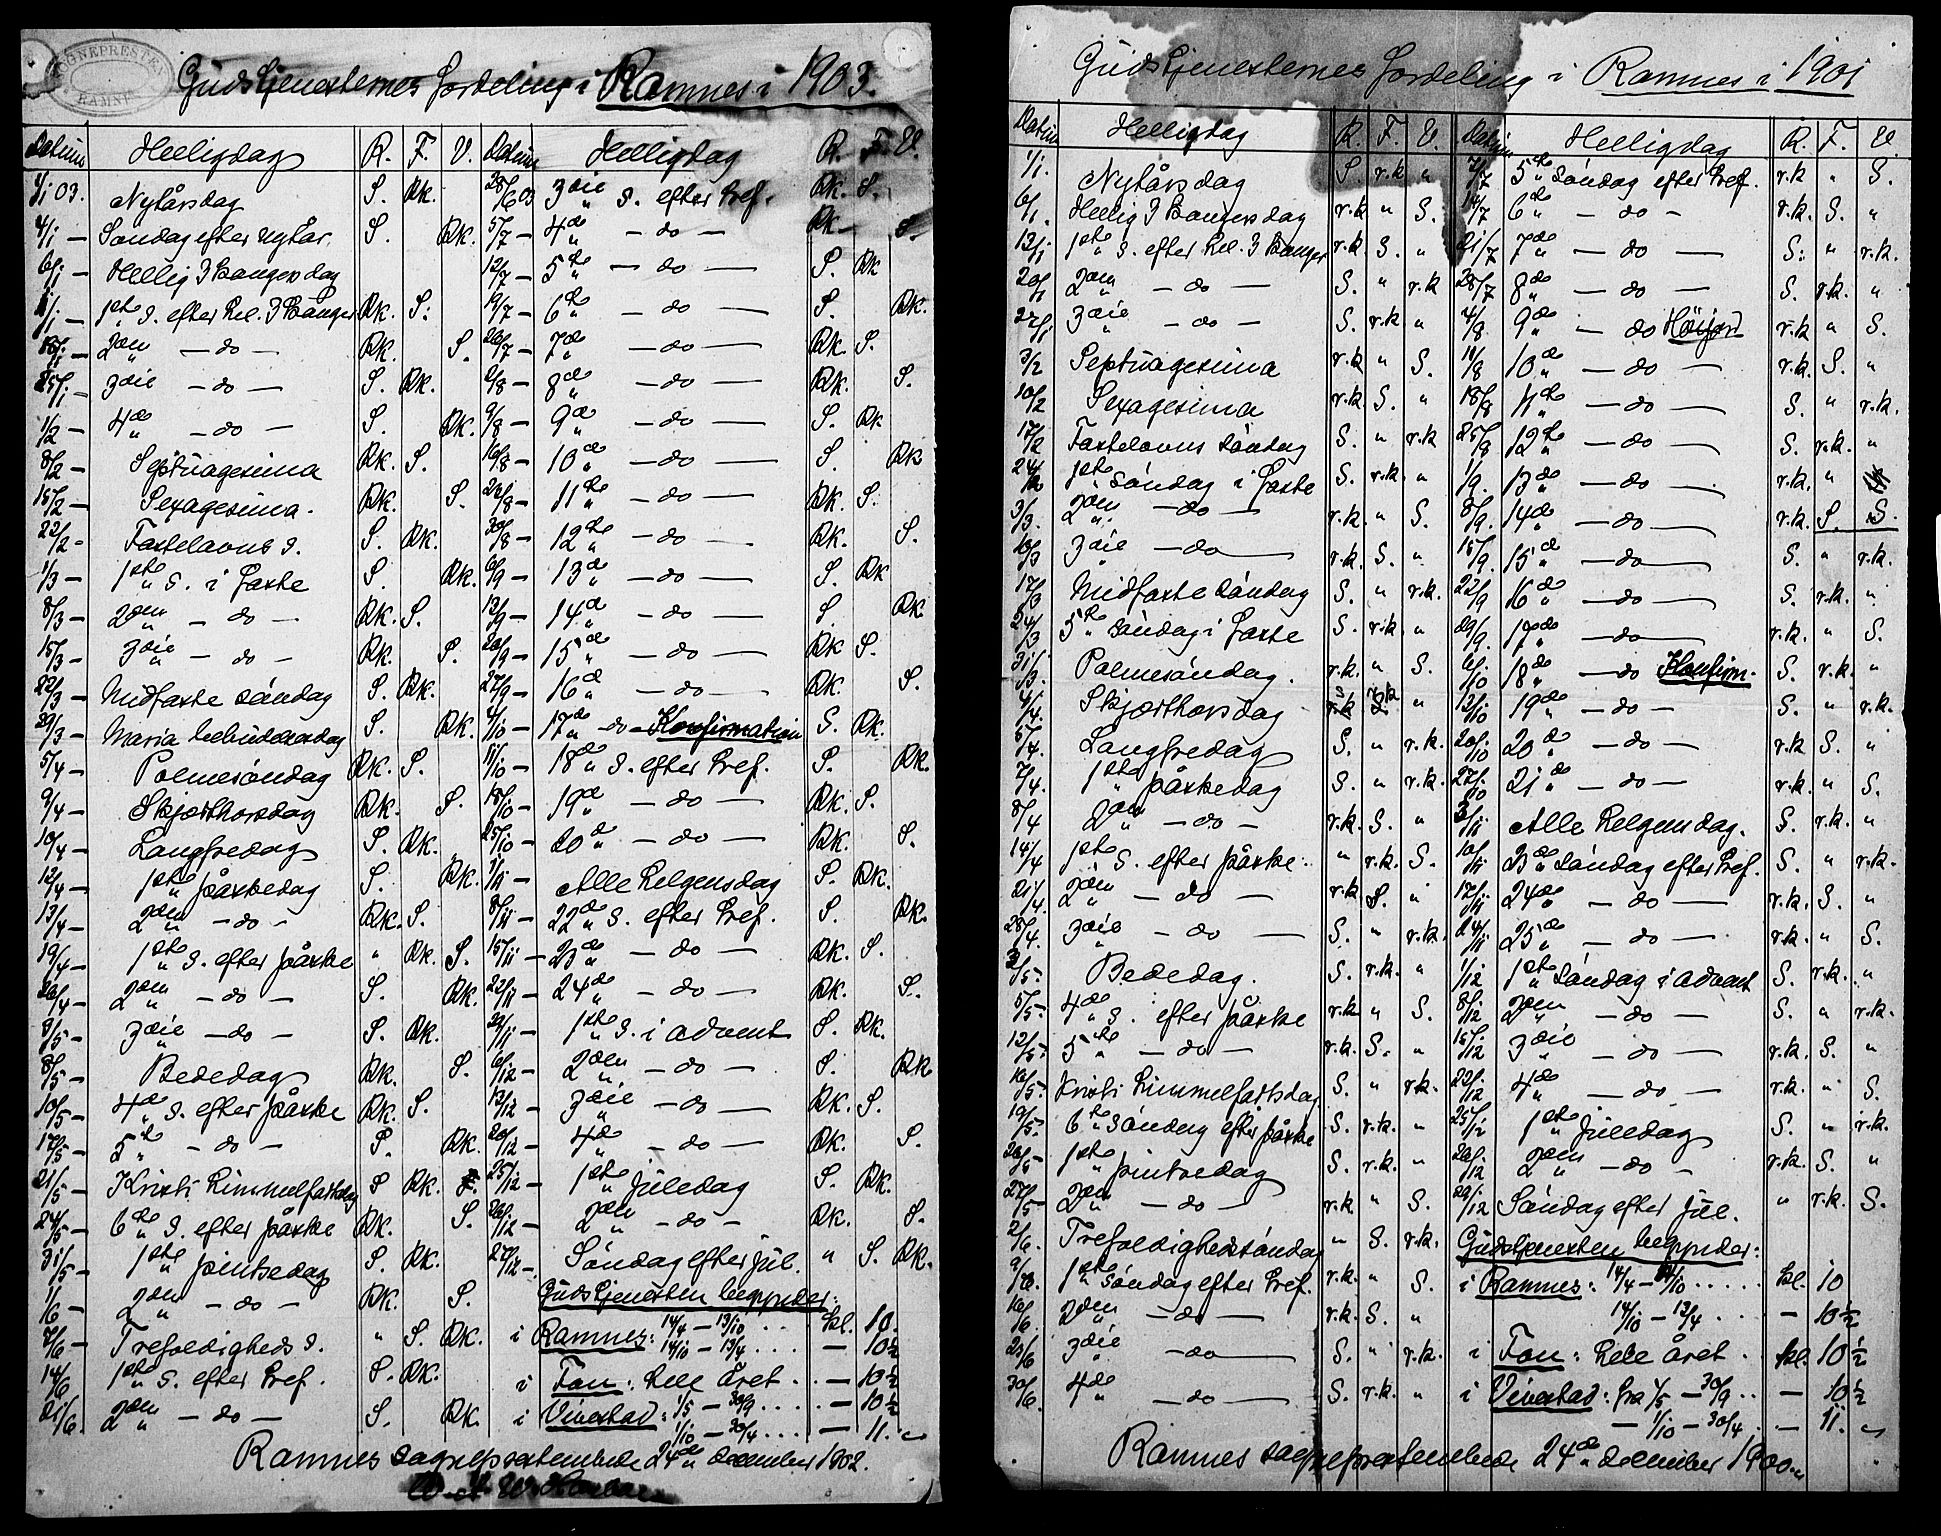 SOGNEPRESTEN
RAMNES
Gudstjenesternes fordeling i Ramnes i 1903.
Datum Helligdag R. F. V.
1/1 03. Nytårsdag S. Rk.
4/1 — Søndag efter nytår. S. Rk.
6/1 — Hellig 3 Kongersdag
11/1 — 1ste S. efter hel. 3 Konger Rk. S.
18/1 — 2den — do — Rk. S.
25/1 — 3die — do — S. Rk.
1/2 — 4de — do — S. Rk.
8/2 — Septuagesima Rk. S.
15/2 — Sexagesima. Rk. S.
22/2 - Fastelavns S. S. Rk.
1/3 — 1ste S. i faste S. Rk.
8/3 — 2den — do — Rk. S.
15/3 — 3die — do — Rk. S.
22/3 — Midfaste søndag S. Rk.
29/3 — Maria bebudelsesdag S. Rk.
5/4 — Palmesøndag Rk. S.
9/4 — Skjærthorsdag Rk. S.
10/4 — Langfredag S. Rk.
12/4 — 1ste påskedag S. Rk.
13/4 — 2den — do - Rk. S.
19/4 — 1ste S. efter påske " Rk. S.
26/4 — 2den — do — S. Rk.
3/5 — 3die — do — S. Rk.
8/5 — Bededag Rk. S.
10/5 — 4de S. efter påske Rk. S.
17/5 — 5te — do — S. Rk.
21/5 — Kristi himmelfartsdag S Rk.
24/5 — 6te S. efter påske Rk. S.
31/5 — 1ste pintsedag S. Rk.
1/6 — 2den — do — Rk. S.
7/6 — Trefoldigheds S. " S. Rk.
14/6 1ste S. efter tref. S. Rk.
21/6. 2den — do — S. Rk.
Datum Helligdag R. F. V.
28/6 03 3die S. efter tref. Rk. S.
5/7 — 4de — do — Rk — S.
12/7 — 5te — do — S. Rk
19/7 — 6te — do — S. Rk.
26/7 — 7de — do — Rk S.
2/8 — 8de — do — Rk. S.
9/8 — 9de — do — S. Rk
16/8 — 10de — do — S. Rk
23/8 — 11te — do — Rk. S.
30/8 — 12te — do — Rk. S.
6/9 — 13de — do — S. Rk
13/9 — 14de — do — S. Rk
20/9 — 15de — do — Rk S.
27/9 — 16de — do — Rk. S.
4/10 — 17de — do — Konfirmation S. Rk.
11/10 — 18de S. efter tref. S. Rk.
18/10 — 19de — do — Rk. S.
25/10 — 20de — do — Rk. S.
1/11 — Alle helgensdag S. Rk.
8/11 — 22de S. efter tref. S. Rk.
15/11 — 23de — do — Rk. S.
22/11 — 24de — do — Rk. S.
29/11 — 1ste S. i advent S. Rk.
6/12 — 2den — do — S. Rk
13/12 — 3die — do — Rk. S.
20/12 — 4de — do — Rk. S.
25/12 — 1ste juledag S. Rk.
26/12 — 2den — do — Rk. S.
27/12 — Søndag efter jul. " S. Rk.
Gudstjenesten begynder:
i Ramnes: 14/4 — 13/10 . . . kl. 10.
14/10 — 13/4 . . . . — 10½
i Fon: hele året . . — 10½
i Vivestad: 1/5 — 30/9 . . . . — 10½
1/10 — 30/4 . . . . — 11.
Ramnes sogneprestembede 24de december 1902.
Gudstjenesternes fordeling i Ramnes i 1901
Datum Helligdag R. F. V.
1/1. Nytårsdag S r.k "
6/1. Hellig 3 Kongersdag r.k " S.
13/1 1ste S. efter hel. 3 Konger r.k. S. "
20/1 2den — do — S. " r.k
27/1 3die — do — S. r.k "
3/2 Septuagesima r.k " S.
10/2 Sexagesima r.k. S. "
17/2 Fastelavns søndag S. " r.k
24/2 1ste Søndag i faste S. r.k. "
3/3. 2den — do — r.k. " S.
10/3 3die — do — r.k. S. "
17/3 Midfaste søndag S. " r.k.
24/3 5te søndag i faste S. r.k. "
31/3. Palmesøndag. r.k. " S.
4/4. Skjærthorsdag
5/4. Langfredag S. " r.k.
7/4. 1ste påskedag S. " r.k.
8/4 2den — do — r.k. S. "
14/4 1ste S. efter påske. " r.k. S.
21/4. 2den — do — r.k S. "
28/4. 3die — do — S. " r.k.
3/5. Bededag. S. r.k. "
5/5- 4de S. efter påske r.k " S.
12/5. 5te — do — r.k. S. "
16/5. Kristi himmelfartsdag S. " r.k.
19/5. 6te Søndag efter påske S. r.k. "
26/5- 1ste pintsedag S. r.k. "
27/5 2den — do — r.k " S.
2/6. Trefoldighedssøndag " S. r.k.
9/6. 1ste Søndag efter tref. r.k. " S.
16/6. 2den — do — r.k. S. "
23/6 3die — do — S. " r.k.
30/6. 4de — do — S. r.k. "
Datum Helligdag R. F. V.
7/7 5te Søndag efter tref. r.k " S.
14/7 6te — do - r.k. S. "
21/7 7de — do — S: " r.k.
28/7 8de — do — S. r.k. "
4/8. 9de — do Höijord r.k " S.
11/8 10de — do — r.k. S. "
18/8 11te — do — S. " r.k.
25/8 12te — do — S. r.k. "
1/9. 13de — do — r.k. "
8/9. 14de — do — r.k. S. S.
15/9. 15de — do — S. " r.k.
22/9 16de — do — S. r.k. "
29/9. 17de — do — r.k. " S.
6/10 18de — do Konfirm. S. r.k. "
13/10 19de — do — S. " r.k.
20/10 20de — do — r.k S. "
27/10 21de — do — r.k. " S.
3/11 Alle helgensdag. S. r.k. "
10/11 23de Søndag efter tref. S. " r.k.
17/11 24de — do — r.k. S. "
24/11 25de — do — r.k. " S.
1/12 1ste Søndag i advent S. r.k. "
8/12 2den — do — S. " r.k.
15/12 3die — do — r.k. S. "
22/12 4de — do — r.k. " S.
25/12 1ste juledag S. " r.k.
26/12 2den — do — r.k. S. "
29/12 Søndag efter jul. " r.k. S.
Gudstjenesten begynder:
i Ramnes: 14/4 — 13/10 . . . . . kl. 10
14/10 — 13/4 . . . — 10½
i Fon: hele året . kl. 10½
i Vivestad: fra 1/5 — 30/9 . . — 10½
— 1/10 — 30/4 . . . — 11.
Ramnes sogneprestembede 24de december 1900.